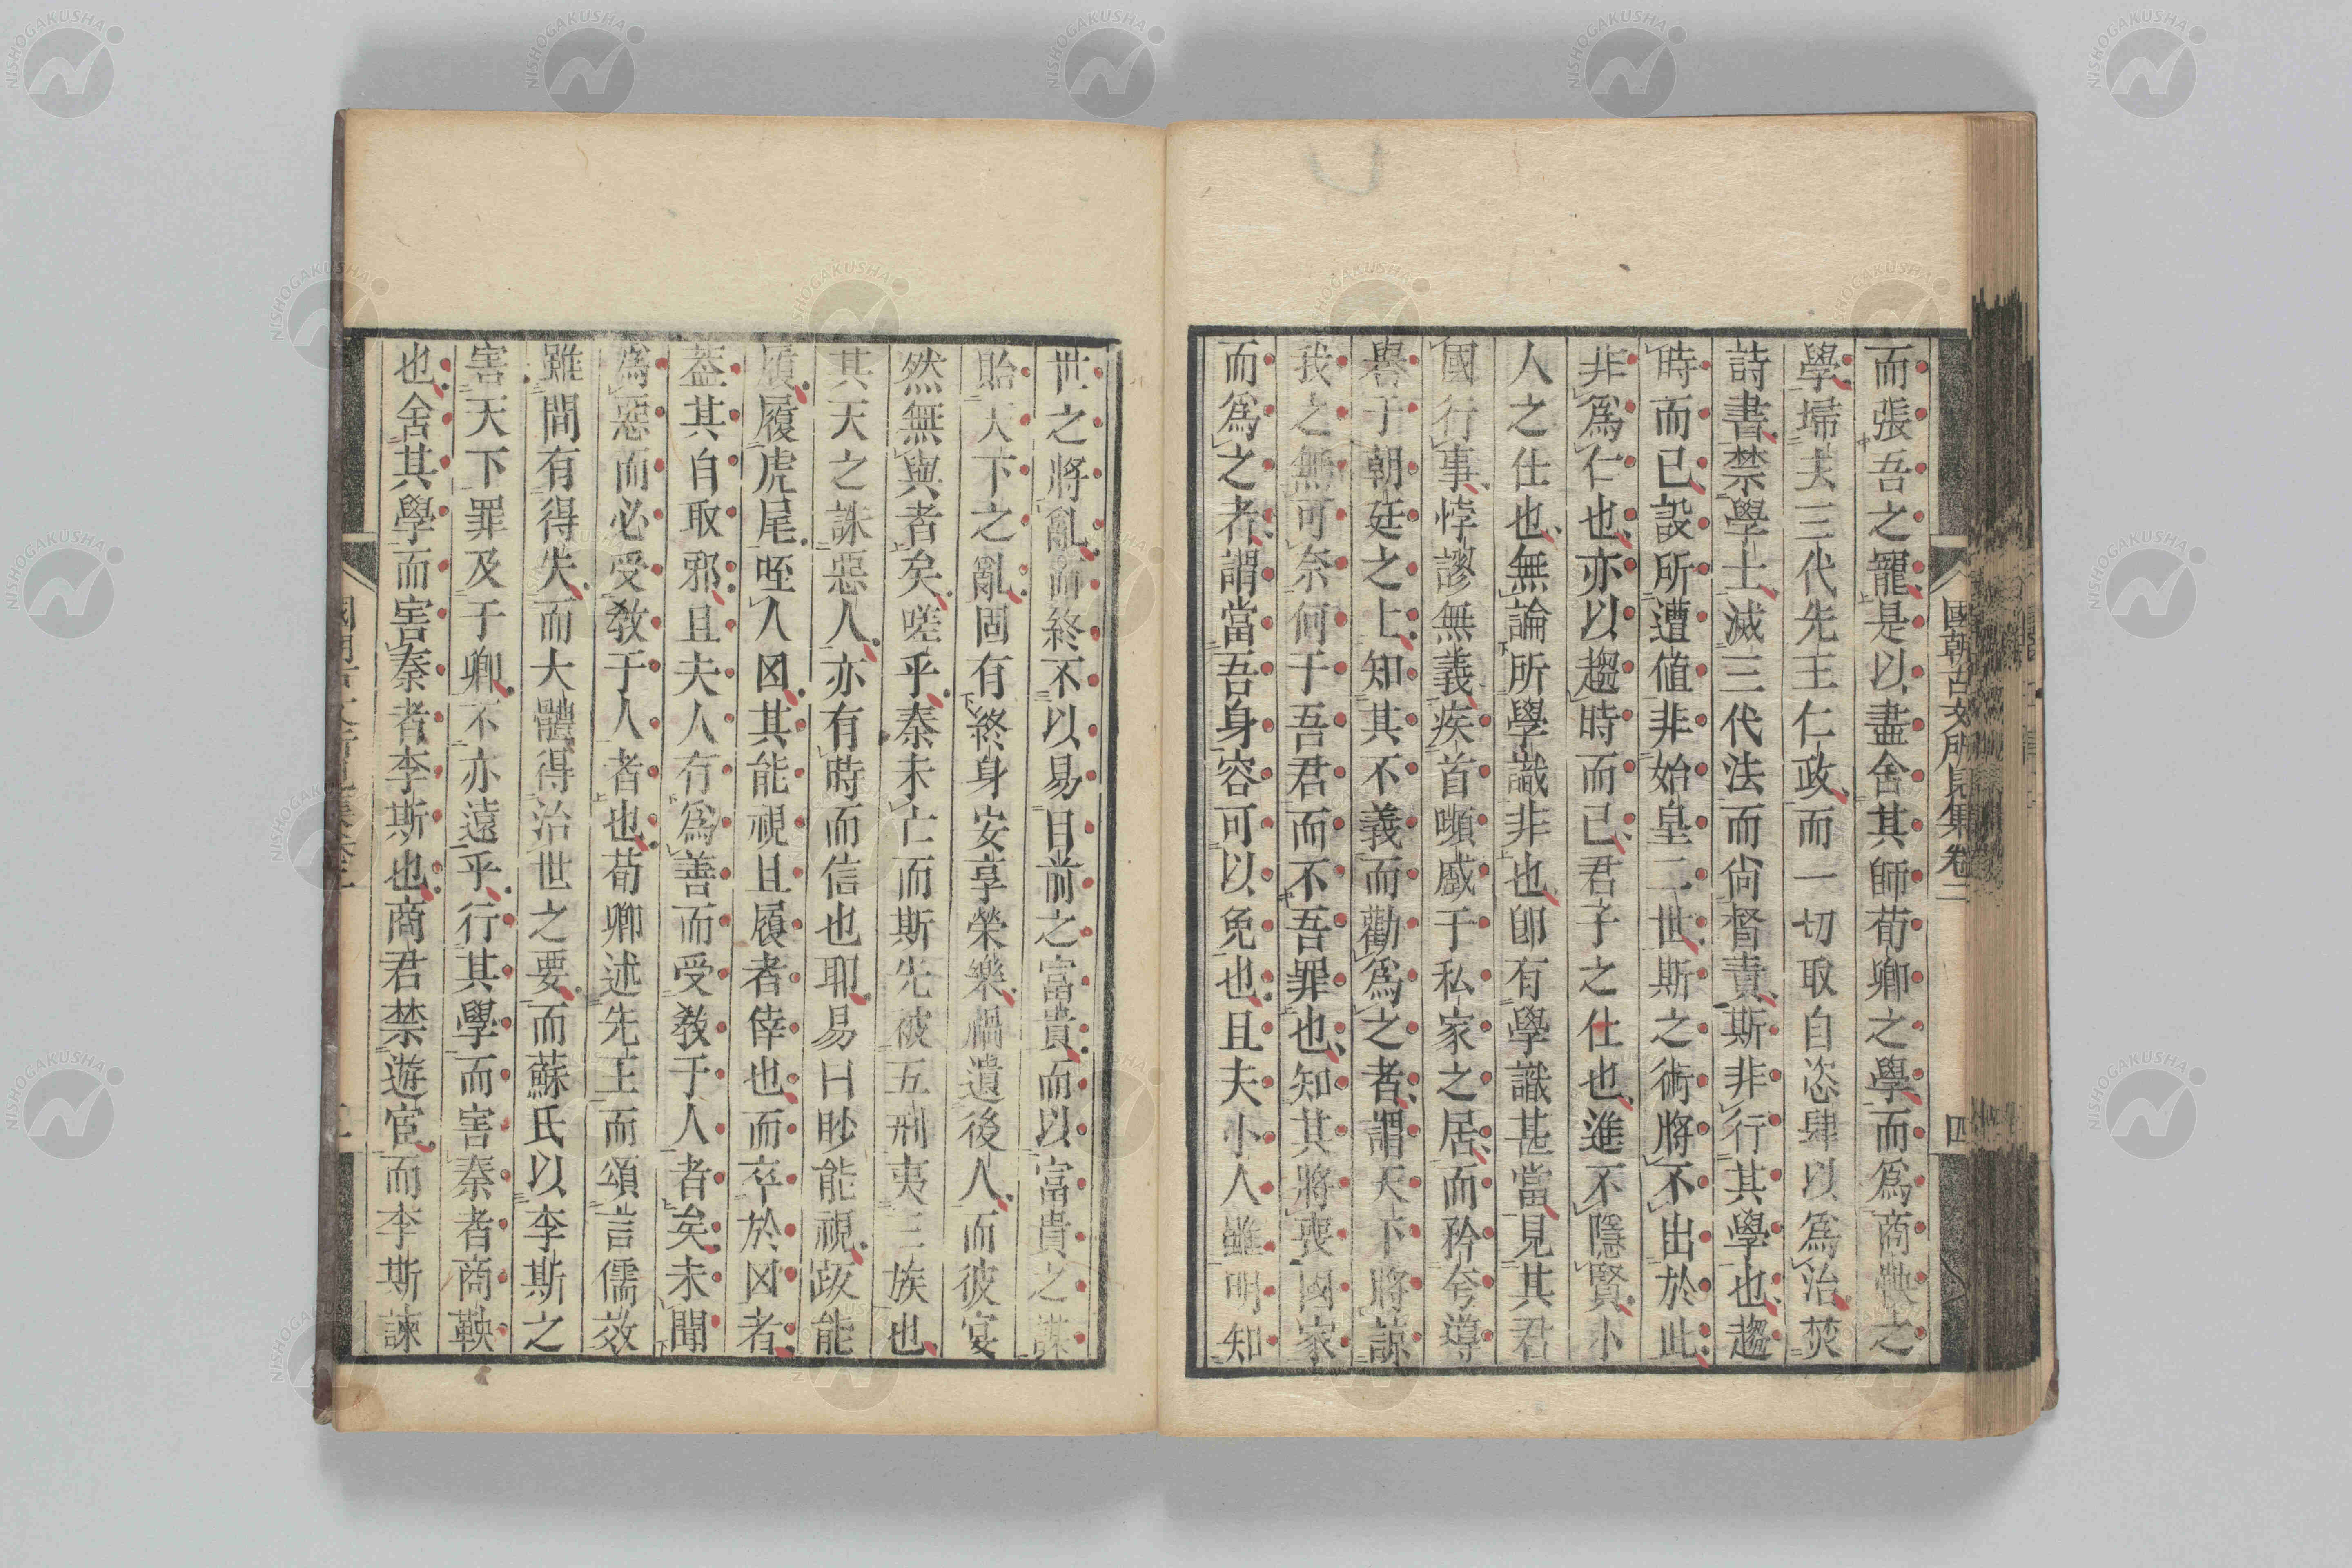 國朝古文所見集卷二
四
而張吾之寵是以盡舍其師荀卿之學而爲商鞅之
學埽去三代先王仁政而一切取自恣肆以爲治焚
詩書禁學士滅三代法而尙督責斯非行其學也趨
時而已設所遭値非始皇二世斯之術將不出於此
非爲仁也亦以趨時而已君子之仕也進不隱賢小
人之仕也無論所學識非也卽有學識甚當見其君
國行事悖謬無義疾首嚬蹙于私家之居而矜兮導
譽于朝廷之上知其不義而勸爲之者謂天下將諒
我之無可奈何于吾君而不吾罪也知其將喪國家
而爲之者謂當吾身容可以免也且夫小人雖明知
世之將亂而終不以易目前之富貴而以富貴之謀
貽天下之亂固有終身安享榮樂禍遺後人而彼宴
然無與者矣嗟乎秦未亡而斯先被五刑夷三族也
其天之誅惡人亦有時而信也耶易曰眇能視跛能
履履虎尾咥人凶其能視且履者倖也而卒於凶者
葢其自取邪且夫人有爲善而受敎于人者矣未聞
爲惡而必受敎于人者也荀卿述先王而頌言儒效
雖間有得失而大體得治世之要而蘇氏以李斯之
害天下罪及于卿不亦遠乎行其學而害秦者商鞅
也舍其學而害秦者李斯也商君禁遊宦而李斯諫
NISHOGAKUSHA